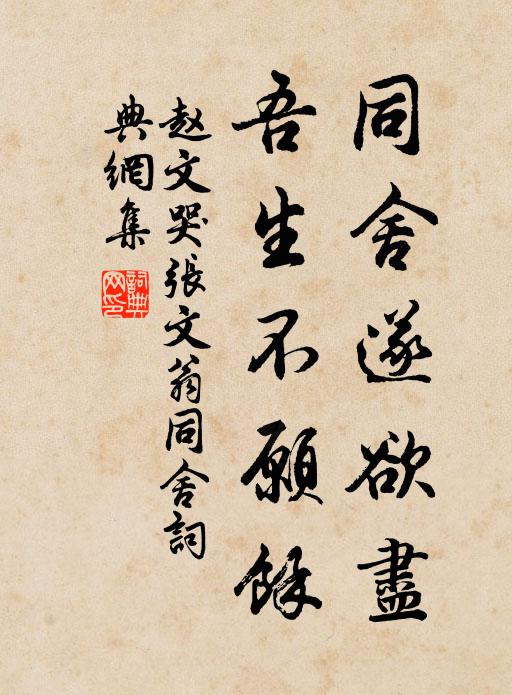 同舍遂欲盡
吾生不願餘
赵文哭張文翁同舍詞
典網集
詞典网印